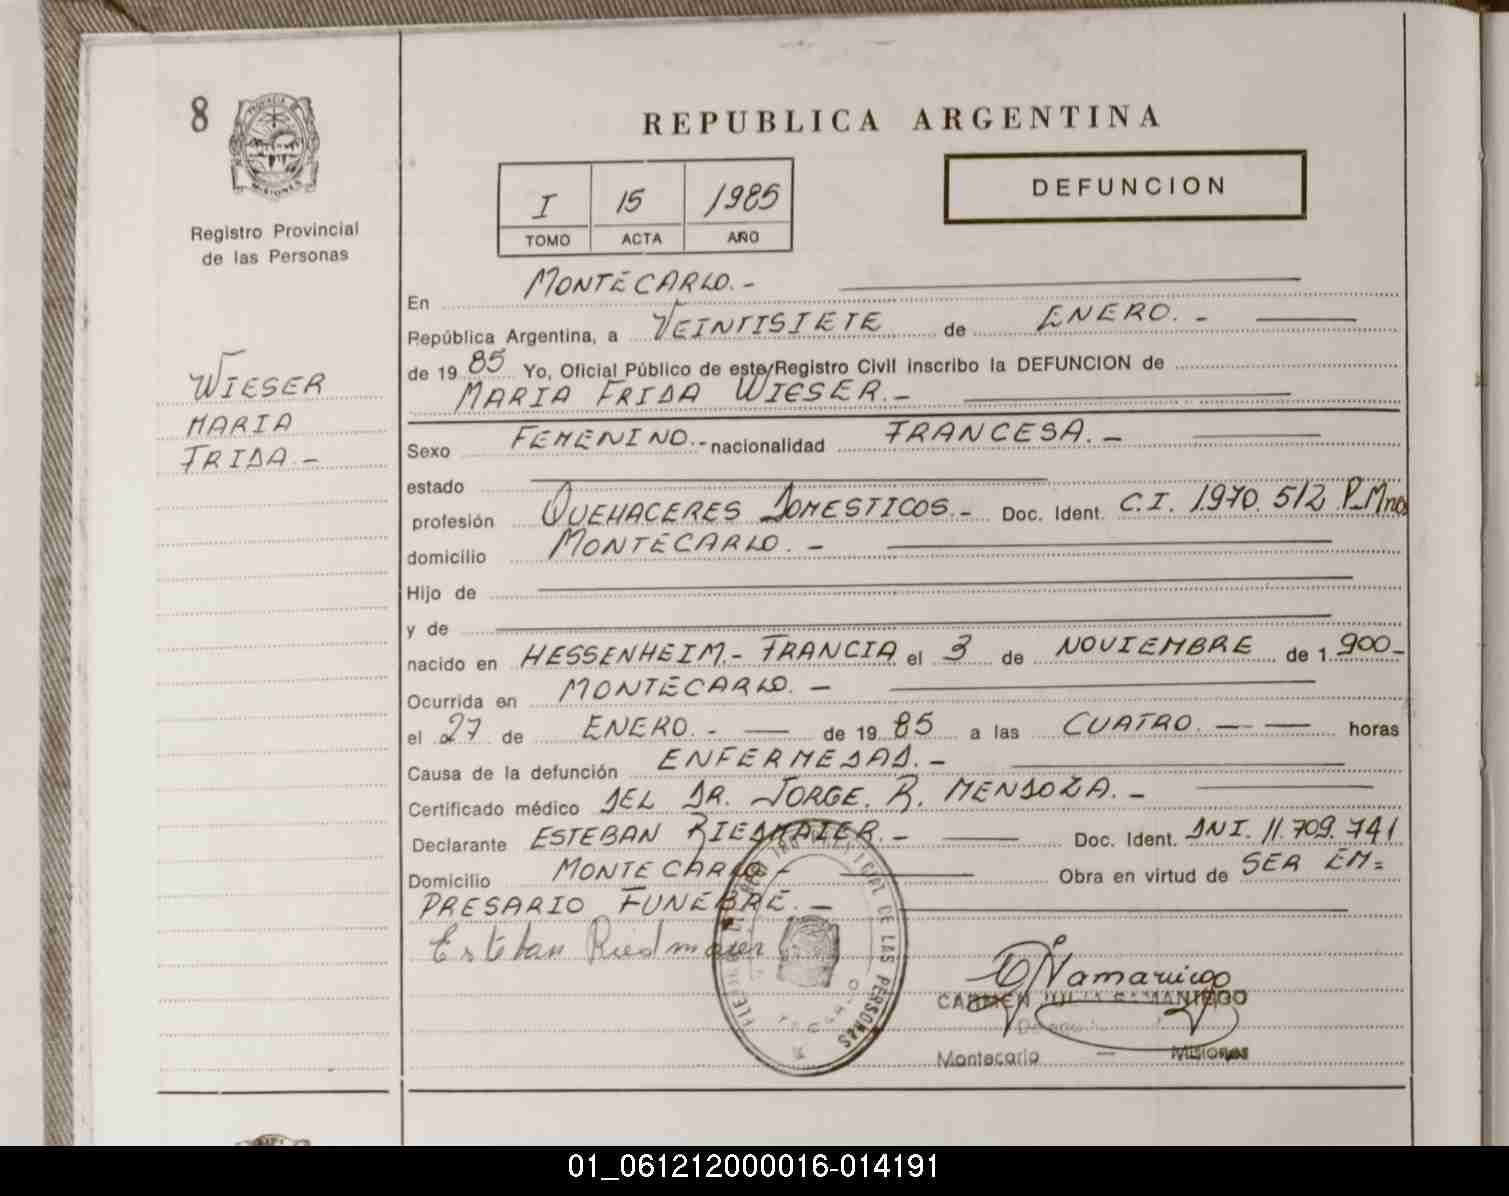 8
PROVINCIA DE
MISIONES
Registro Provincial
de las Personas
WIESER
MARIA
FRIDA.-
REPUBLICA ARGENTINA
I 15 1985
TOMO ACTA AÑO
DEFUNCION
En MONTECARLO.-
República Argentina, a VEINTISIETE de ENERO.-
de 19 85 Yo, Oficial Público de este Registro Civil inscribo la DEFUNCION de
MARIA FRIDA WIESER.-
Sexo FEMENINO.- nacionalidad FRANCESA.-
estado
profesión QUEHACERES DOMESTICOS.- Doc. Ident. C.I. 1.970.512 P.Mnes
domicilio MONTECARLO.-
Hijo de
y de
nacido en HESSENHEIM.- FRANCIA el 3 de NOVIEMBRE de 1.900-
Ocurrida en MONTECARLO.-
el 27 de ENERO.- de 19 85 a las CUATRO.- horas
Causa de la defunción ENFERMEDAD.-
Certificado médico DEL DR. JORGE. R. MENDOZA.-
Declarante ESTEBAN RIEDMAIER.- Doc. Ident. DNI. 11.709.741
Domicilio MONTECARLO- Obra en virtud de SER EM=
PRESARIO FUNEBRE.-
Esteban Riedmaier
DE LAS PERSONAS
CARMEN JULIA SAMANIEGO
Montecarlo — Misiones
01_061212000016-014191